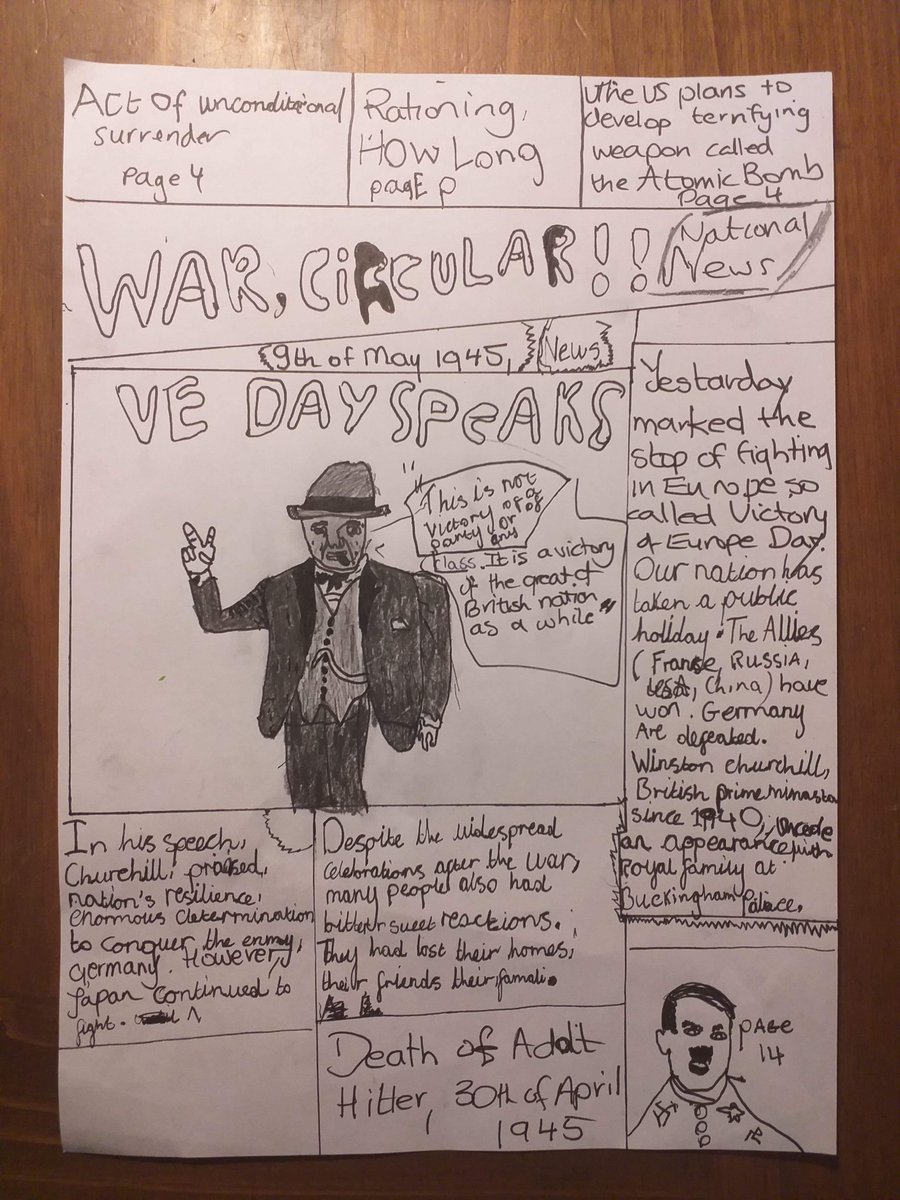 Act of unconditional
surrender
page 4
Rationing,
How Long
pagE p
The US plans to
develop terrifying
weapon called
the Atomic Bomb
Page 4
WAR, CiRCULAR!!
National
News
9th of May 1945,
News
VE DAY SPeAKS
"This is not
victory of a
party or of
any
class. It is a victory
of the great of
British nation
as a while"
Yestarday
marked the
stop of fighting
in Europe so
called Victory
of Europe Day.
Our nation has
taken a public
holiday. The Allies
(Franse, RUSSIA,
USA, China) have
won. Germany
Are defeated.
Winston churchill,
British prime minasta
since 1940,
an appearance with
royal family at
Buckingham Palace.
In his speech,
Churchill, praised,
nation's resilience,
enormous determination
to conquer the enemy,
Germany. However,
Japan continued to
fight.
Despite the widespread
celebrations after the war,
many people also had
bitter sweet reactions.
They had lost their homes,
their friends their famali.
Death of Adolt
Hitler, 30th of April
1945
PAGE
14